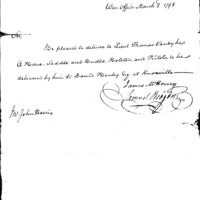 War Office March 8 1798
Sir
Be pleased to deliver to Lieut Thomas Vandyke
A Horse, Saddle and Bridle, Holsters and Pistols, to be
delivered by him to David Henley Esq. at Knoxville
James McHenry
Samuel Hodgdon
Mr John Harris